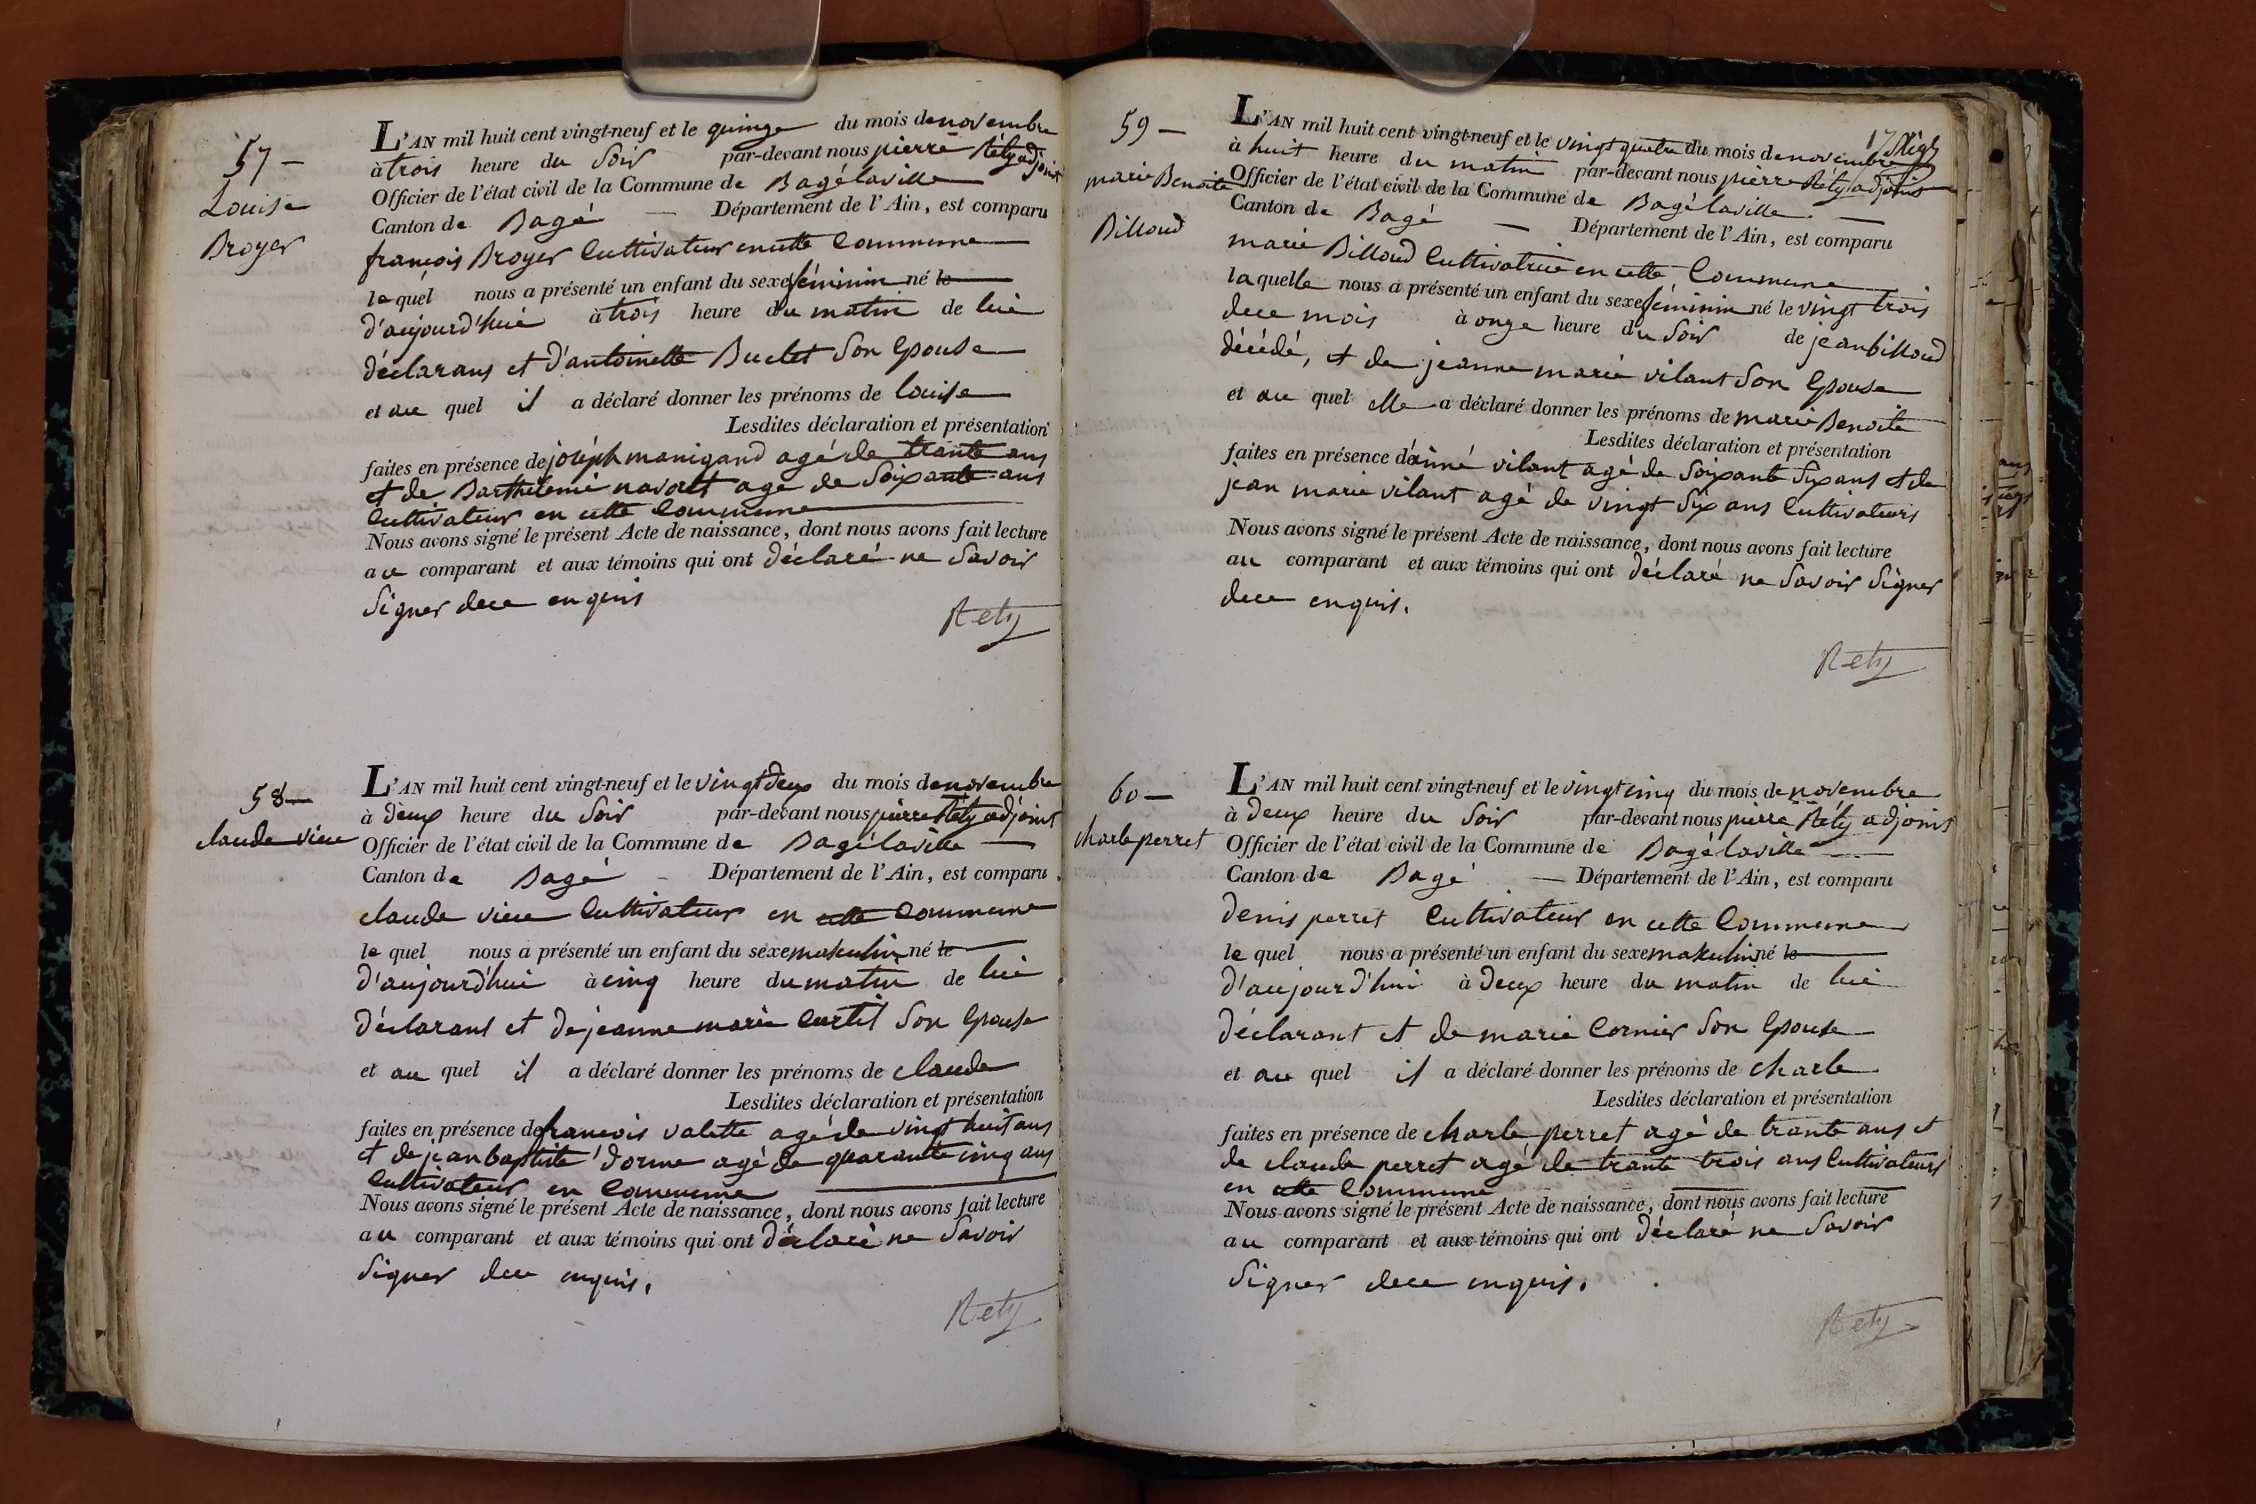 57 —
Louise
Broyer
L'AN mil huit cent vingt-neuf et le quinze du mois de novembre
à trois heure du Soir par-devant nous pierre Réty adjoint
Officier de l'état civil de la Commune de Bagé laville
Canton de Bagé — Département de l'Ain, est comparu
françois Broyer Cultivateur en cette Commune
le quel nous a présenté un enfant du sexe féminin né le
d'aujourd'hui à trois heure du matin de lui
déclarans et d'antoinette Buclet Son Epouse
et au quel il a déclaré donner les prénoms de louise
Lesdites déclaration et présentation
faites en présence de joséph manigand agé de trante ans
et de Barthelemi navoret age de Soixante ans
Cultivateur en cette Commune
Nous avons signé le présent Acte de naissance, dont nous avons fait lecture
au comparant et aux témoins qui ont déclaré ne Savoir
Signer de ce enquis
Rety
58 —
claude vieu
L'AN mil huit cent vingt-neuf et le vingt deux du mois de novembre
à deux heure du Soir par-devant nous pierre Réty adjoint
Officier de l'état civil de la Commune de Bagé laville
Canton de Bagé — Département de l'Ain, est comparu
claude vieu Cultivateur en cette Commune
le quel nous a présenté un enfant du sexe maskulin né le
d'aujourd'hui à cinq heure du matin de lui
déclarant et de jeanne marie Curtil Son Epouse
et au quel il a déclaré donner les prénoms de claude
Lesdites déclaration et présentation
faites en présence de francois valette agé de vingt huit ans
et de jean baptiste dorme agé de quarante cinq ans
Cultivateur en Commune
Nous avons signé le présent Acte de naissance, dont nous avons fait lecture
au comparant et aux témoins qui ont déclaré ne Savoir
Signer de ce enquis.
Rety
17
59 —
marie Benoite
Billoud
L'AN mil huit cent vingt-neuf et le vingt quatre du mois de novembre
à huit heure du matin par-devant nous pierre Réty adjoint
Officier de l'état civil de la Commune de Bagé laville
Canton de Bagé — Département de l'Ain, est comparu
marie Billoud Cultivatrice en cette Commune
la quelle nous a présenté un enfant du sexe féminin né le vingt trois
de ce mois à onze heure du Soir de jean billoud
décédé, et de jeanne marie vilant Son Epouse
et au quel elle a déclaré donner les prénoms de marie Benoite
Lesdites déclaration et présentation
faites en présence d'aimé vilant agé de Soixante Six ans et de
jean marie vilant agé de vingt Six ans Cultivateurs
Nous avons signé le présent Acte de naissance, dont nous avons fait lecture
au comparant et aux témoins qui ont déclaré ne Savoir Signer
de ce enquis.
Rety
60 —
charle perret
L'AN mil huit cent vingt-neuf et le vingt cinq du mois de novembre
à deux heure du Soir par-devant nous pierre Réty adjoint
Officier de l'état civil de la Commune de Bagé laville
Canton de Bagé — Département de l'Ain, est comparu
denis perret Cultivateur en cette Commune
le quel nous a présenté un enfant du sexe maskulin né le
d'aujourd'hui à deux heure du matin de lui
déclarant et de marie Cornier Son Epouse
et au quel il a déclaré donner les prénoms de charle
Lesdites déclaration et présentation
faites en présence de charle perret agé de trante ans et
de claude perret agé de trante trois ans Cultivateurs
en cette Commune
Nous avons signé le présent Acte de naissance, dont nous avons fait lecture
au comparant et aux témoins qui ont déclaré ne Savoir
Signer de ce enquis.
Rety